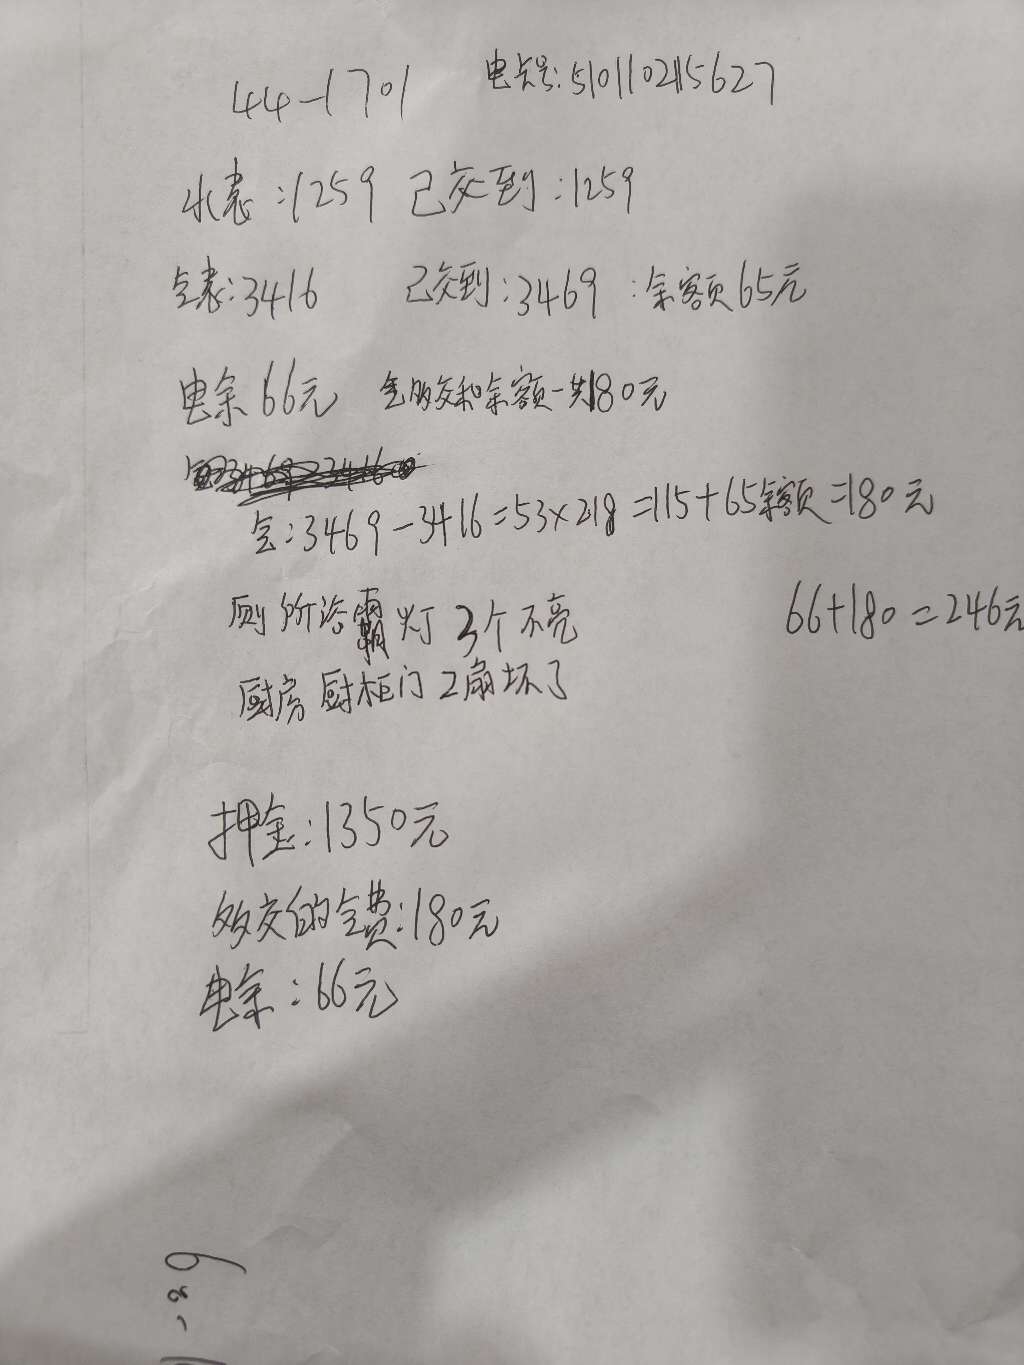 44-1701 电卡号:5101102115627
水表:1259 已交到:1259
气表:3416 已交到:3469 :余额65元
电余66元 气多交和余额一共180元
气:3469-3416=53×218=115+65余额=180元
厕所浴霸灯3个不亮 66+180=246元
厨房厨柜门2扇坏了
押金:1350元
多交的气费:180元
电余:66元